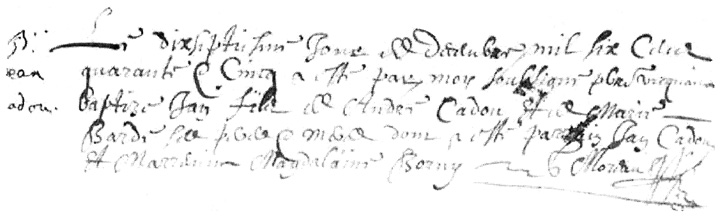 Le dixseptiesme Jour de decembre mil six Cens
quarante & Cinq a esté par moy soubsigné pbre
baptizé Jan fils de André Cadou et de Marie
Bardé ses pere & mere dont a esté parain Jan Cadou
et Marraine Magdalaine Borny Moreau